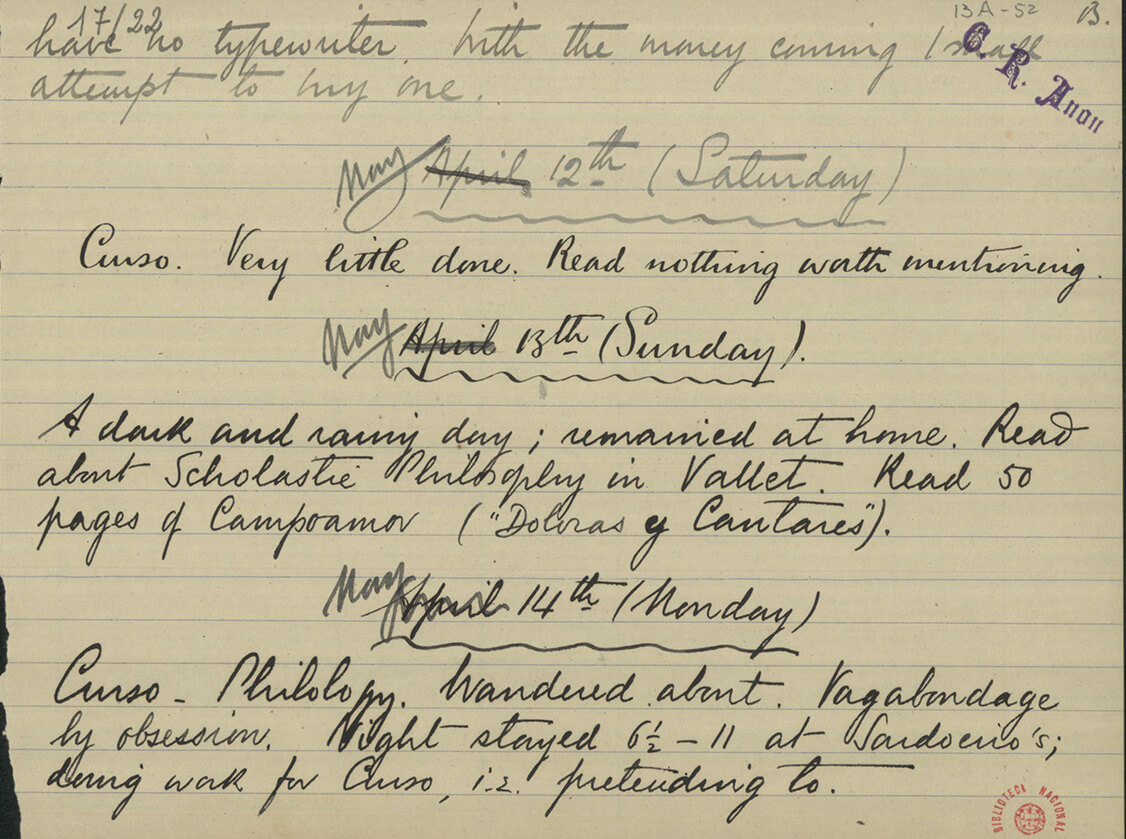 17/22
13A-52
B.
have no typewriter. With the money coming I shall
C. R. Anon
attempt to buy one.
May April 12th (Saturday)
Curso. Very little done. Read nothing worth mentioning.
May April 13th (Sunday).
A dark and rainy day; remained at home. Read
about Scholastic Philosophy in Vallet. Read 50
pages of Campoamor ("Doloras y Cantares").
May April 14th (Monday)
Curso - Philology. Wandered about. Vagabondage
by obsession. Night stayed 6½ - 11 at Sardoeiro's;
doing work for Curso, i.e. pretending to.
BIBLIOTECA NACIONAL